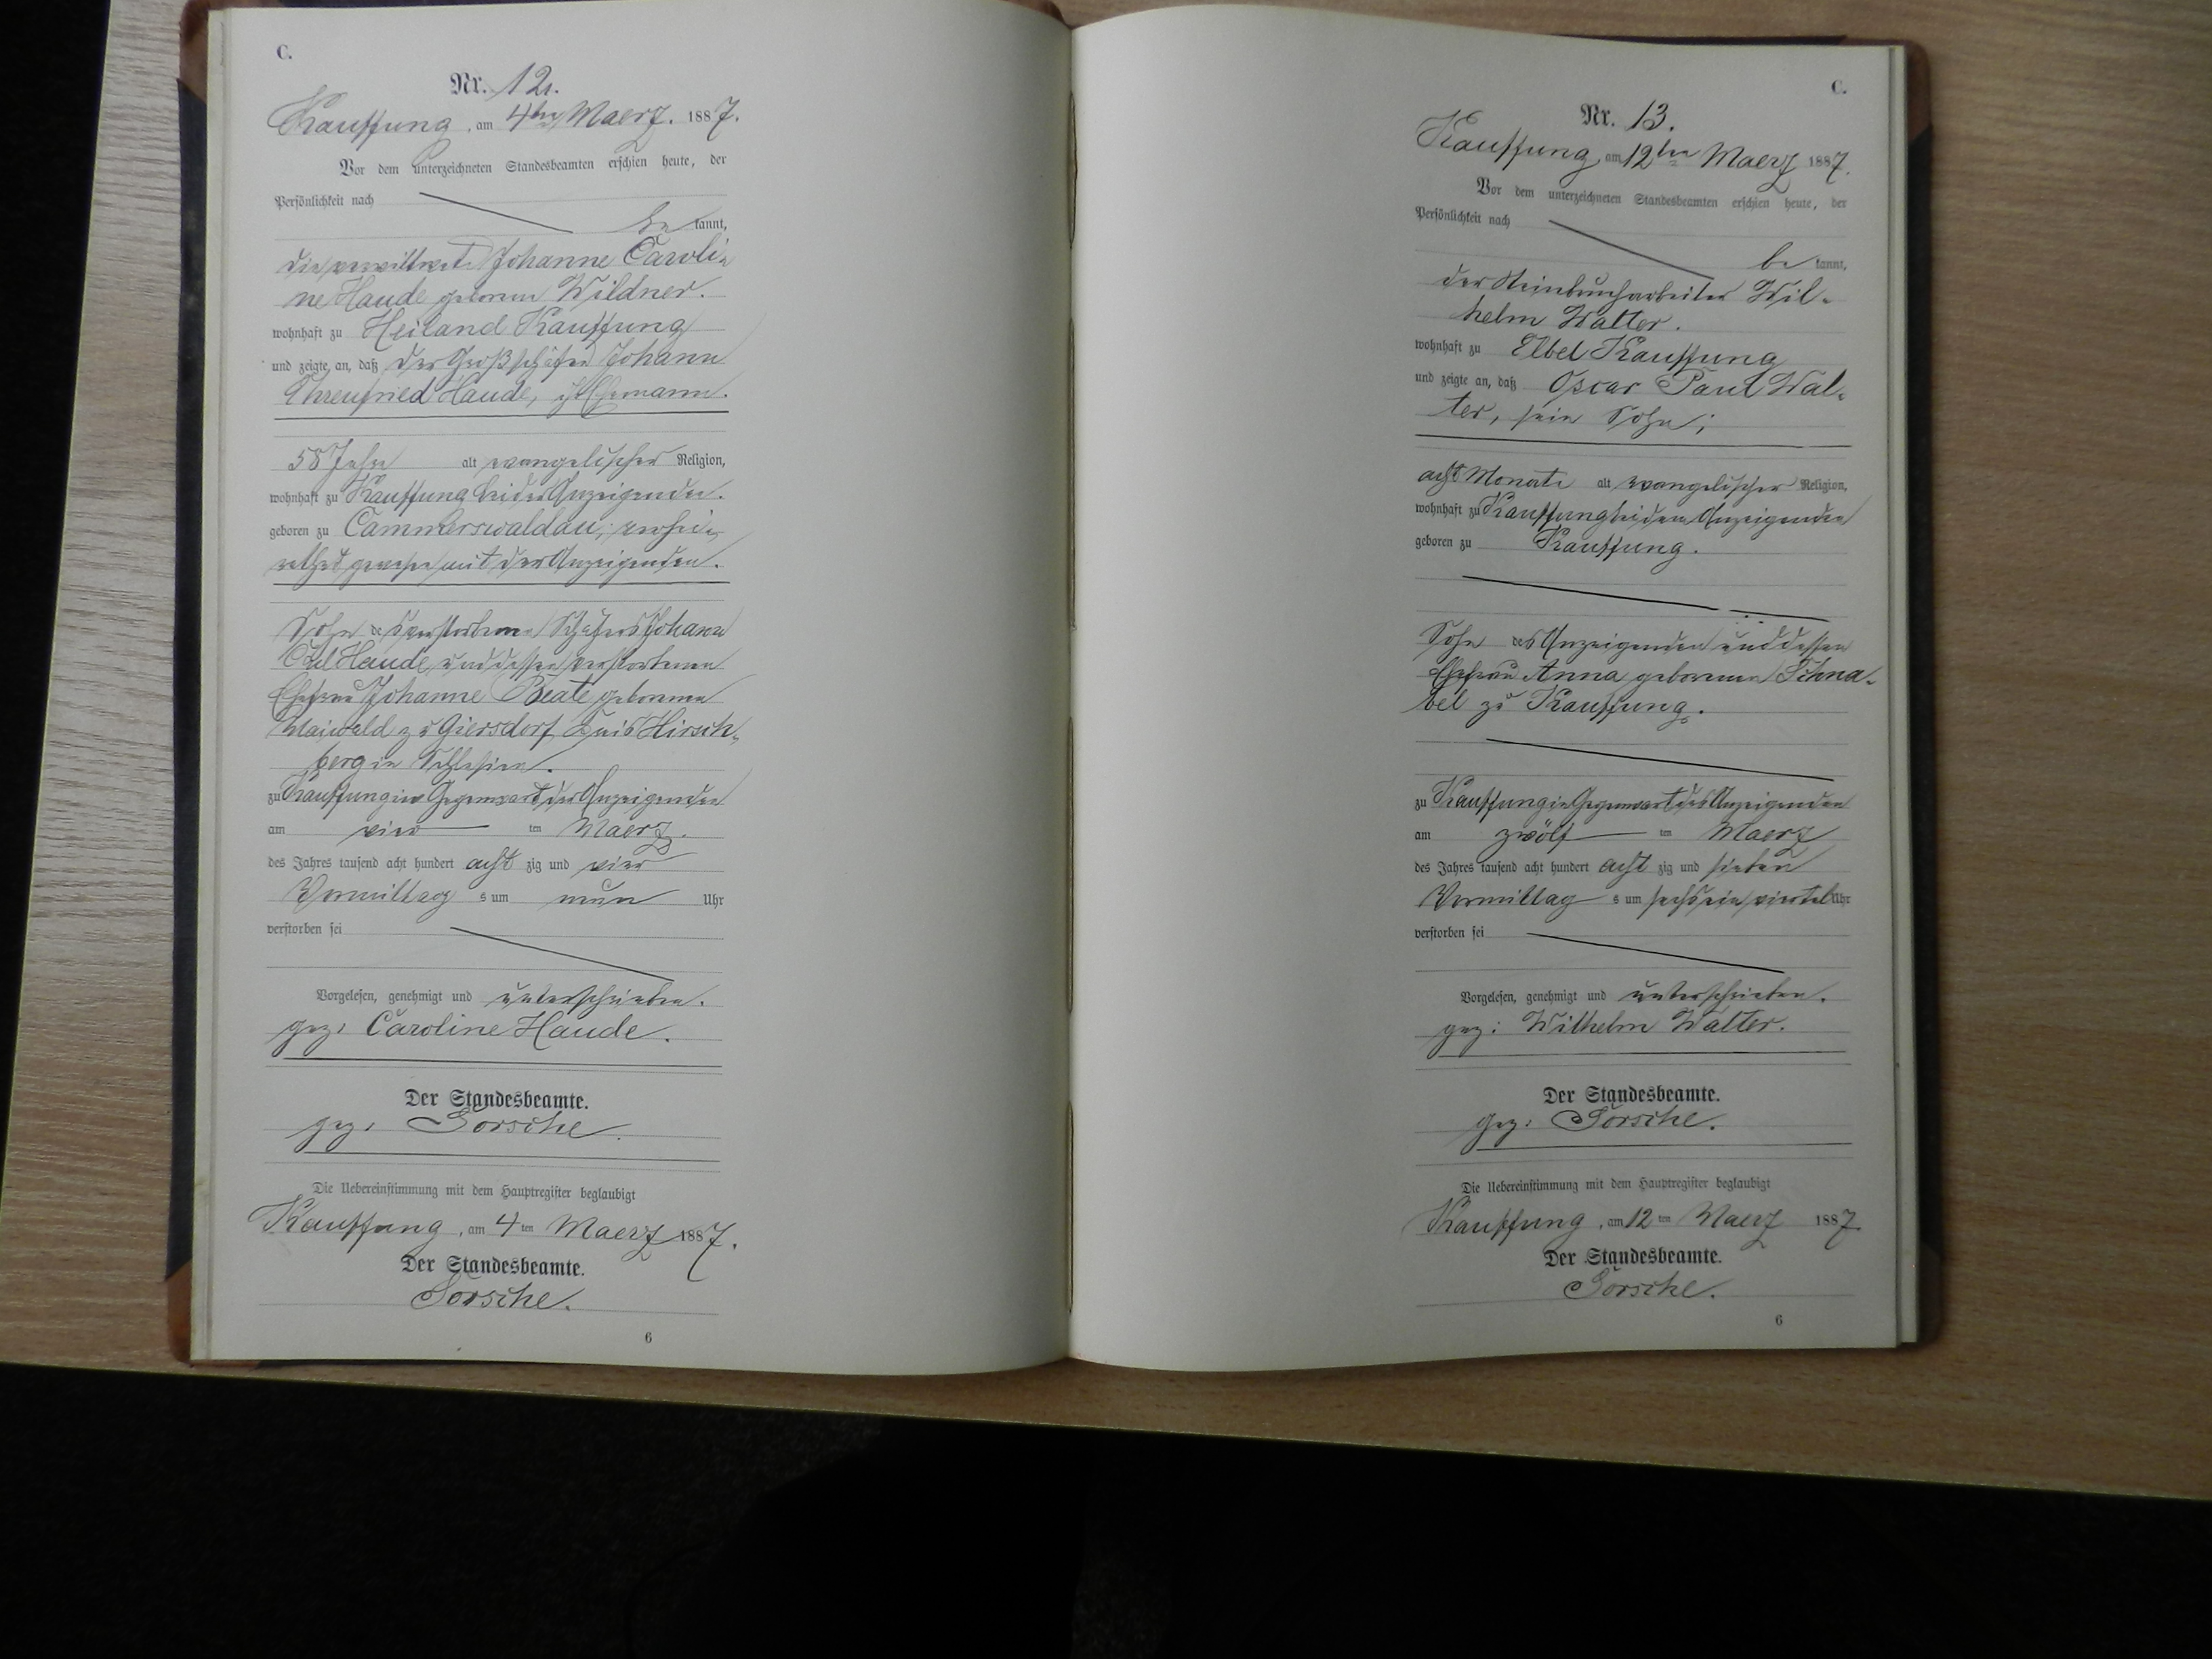 C.
Nr. 12.
Kauffung, am 4ten Maerz. 1887.
Vor dem unterzeichneten Standesbeamten erschien heute, der
Persönlichkeit nach
be kannt,
die verwittwete Johanne Caroli-
ne Haude geborene Wildner.
wohnhaft zu Heiland Kauffung
und zeigte an, daß der Großschäfer Johann
Ehrenfried Haude, ihr Ehemann.
58 Jahre alt evangelischer Religion,
wohnhaft zu Kauffung bei der Anzeigenden.
geboren zu Cammerswaldau; verhei-
rathet gewesen mit der Anzeigenden.
Sohn des verstorbenen Schäfers Johann
Carl Haude, und dessen verstorbenen
Ehefrau Johanne Beate geborenen
Maiwald zu Giersdorf Kreis Hirsch-
berg in Schlesien.
zu Kauffung in Gegenwart der Anzeigenden
am vier ten Maerz.
des Jahres tausend acht hundert acht zig und vier
Vormittag s um neun Uhr
verstorben sei
Vorgelesen, genehmigt und unterschrieben.
gez: Caroline Haude.
Der Standesbeamte.
gez: Sorsche.
Die Uebereinstimmung mit dem Hauptregister beglaubigt
Kauffung, am 4 ten Maerz 1887.
Der Standesbeamte.
Sorsche.
6
C.
Nr. 13.
Kauffung, am 12ten Maerz 1887.
Vor dem unterzeichneten Standesbeamten erschien heute, der
Persönlichkeit nach
be kannt,
der Steinbrucharbeiter Wil-
helm Walter.
wohnhaft zu Elbel Kauffung
und zeigte an, daß Oscar Paul Wal-
ter, sein Sohn;
acht Monate alt evangelischer Religion,
wohnhaft zu Kauffung bei dem Anzeigenden
geboren zu Kauffung.
Sohn des Anzeigenden und dessen
Ehefrau Anna geborenen Schna-
bel zu Kauffung.
zu Kauffung in Gegenwart des Anzeigenden
am zwölf ten Maerz
des Jahres tausend acht hundert acht zig und sieben
Vormittag s um sechs ein viertel Uhr
verstorben sei
Vorgelesen, genehmigt und unterschrieben.
gez: Wilhelm Walter.
Der Standesbeamte.
gez: Sorsche.
Die Uebereinstimmung mit dem Hauptregister beglaubigt
Kauffung, am 12 ten Maerz 1887.
Der Standesbeamte.
Sorsche.
6